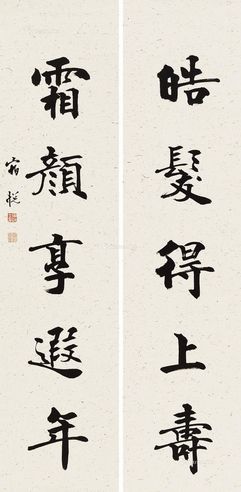 皓髮得上壽
霜顏享遐年